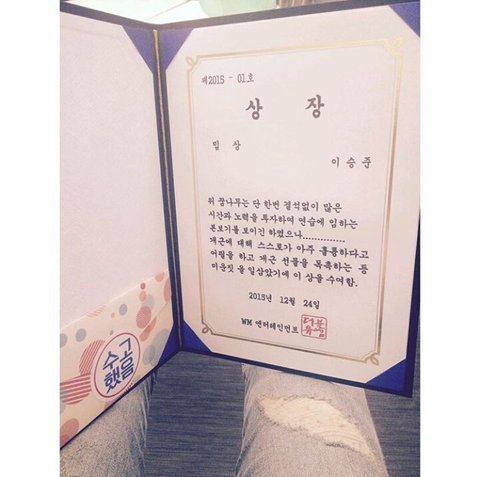 제2015 - 01호
상 장
밉 상
이 승 준
위 꿈나무는 단 한번 결석없이 많은
시간과 노력을 투자하여 연습에 임하는
본보기를 보이긴 하였으나..............
개근에 대해 스스로가 아주 훌륭하다고
어필을 하고 개근 선물을 독촉하는 등
미운짓 을 일삼았기에 이 상을 수여함.
2015년 12월 24일
WM 엔터테인먼트
수고
했음